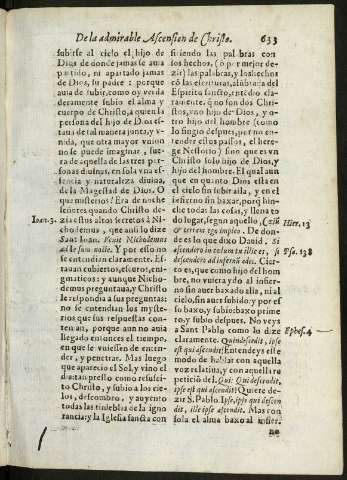 De la admirable Ascension de Christo. 633
subirse al cielo el hijo de
Dios de donde jamas se auia
partido, ni apartado jamas
de Dios, su padre: porque
auia de subir, como oy verda
deramente subio el alma y
cuerpo de Christo, a quien la
persona del hijo de Dios es-
taua de tal manera junta, y v-
nida, que otra mayor vnion
no se puede imaginar, fue-
ra de aquella de las tres per-
sonas diuinas, en sola vna es-
sencia y naturaleza diuina,
de la Magestad de Dios. O
que misterios! Era de noche
señores quando Christo de-
Ioan. 3.
zia estos altos secretos à Ni-
chodemus, que ansi lo dize
Sant Ioan. Venit Nichodemus
ad Iesum nocte. Y por esso no
se entendian claramente. Es-
tauan cubiertos, escuros, enig-
maticos: y aunque Nicho-
demus preguntaua, y Christo
le respondia a sus preguntas:
no se entendian los myste-
rios que sus respuestas con-
tenian, porque aun no auia
llegado entonces el tiempo,
en que se vuiessen de enten-
der, y penetrar. Mas luego
que aparecio el Sol, y vino el
dia tan presto como resusci-
to Christo, y subio a los cie-
los, descombro, y auyento
todas las tinieblas de la igno
rancia: y la Iglesia sancta con
firiendo las palabras con
los hechos, (o por mejor de-
zir) las palabras, y los hechos
cõ las escrituras, alũbrada del
Espiritu sancto, entẽdio cla-
ramente. q̃ no son dos Chri-
stos, vno hijo de Dios, y o-
tro hijo del hombre (como
lo fingio despues, por no en-
tender estos passos, el here-
ge Nestorio) sino que es vn
Christo solo hijo de Dios, y
hijo del hombre. El qual aun
que en quanto Dios esta en
el cielo sin subir alla, y en el
infierno sin baxar, porq̃ hin-
che todas las cosas, y llena to
do lugar, segun aquello, (Cœlũ
Hier. 23
& terram ego impleo. De don-
de es lo que dixo Dauid. Si
ascendero in cœlum tu illic es, si
Psa. 138
descendero ad infernũ ades. Cier-
to es, que como hijo del hom
bre, no vuiera ydo al infier-
no sin auer baxado alla, ni al
cielo, sin auer subido: y por es
so baxo, y subio: baxo prime-
ro, y subio despues. No veys
a Sant Pablo como lo dize
Ephes. 4
claramente. Qui descendit, ipse
est qui ascendit? Entendeys esse
modo de hablar con aquella
voz relatiua, y con aquella re
peticiõ del. Qui: Qui descendit,
ipse est qui ascendit? Quiere de-
zir S. Pablo. Ipse, ipse qui descen
dit, ille ipse ascendit. Mas con
sola el alma baxo al infier-
no